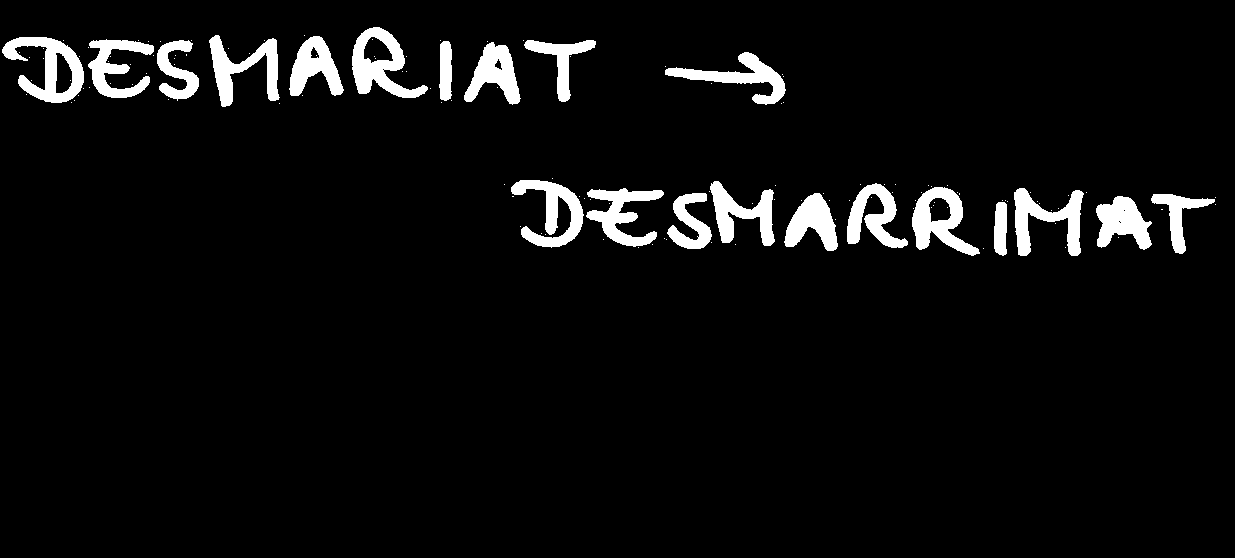 DESMARIAT →
DESMARRIMAT